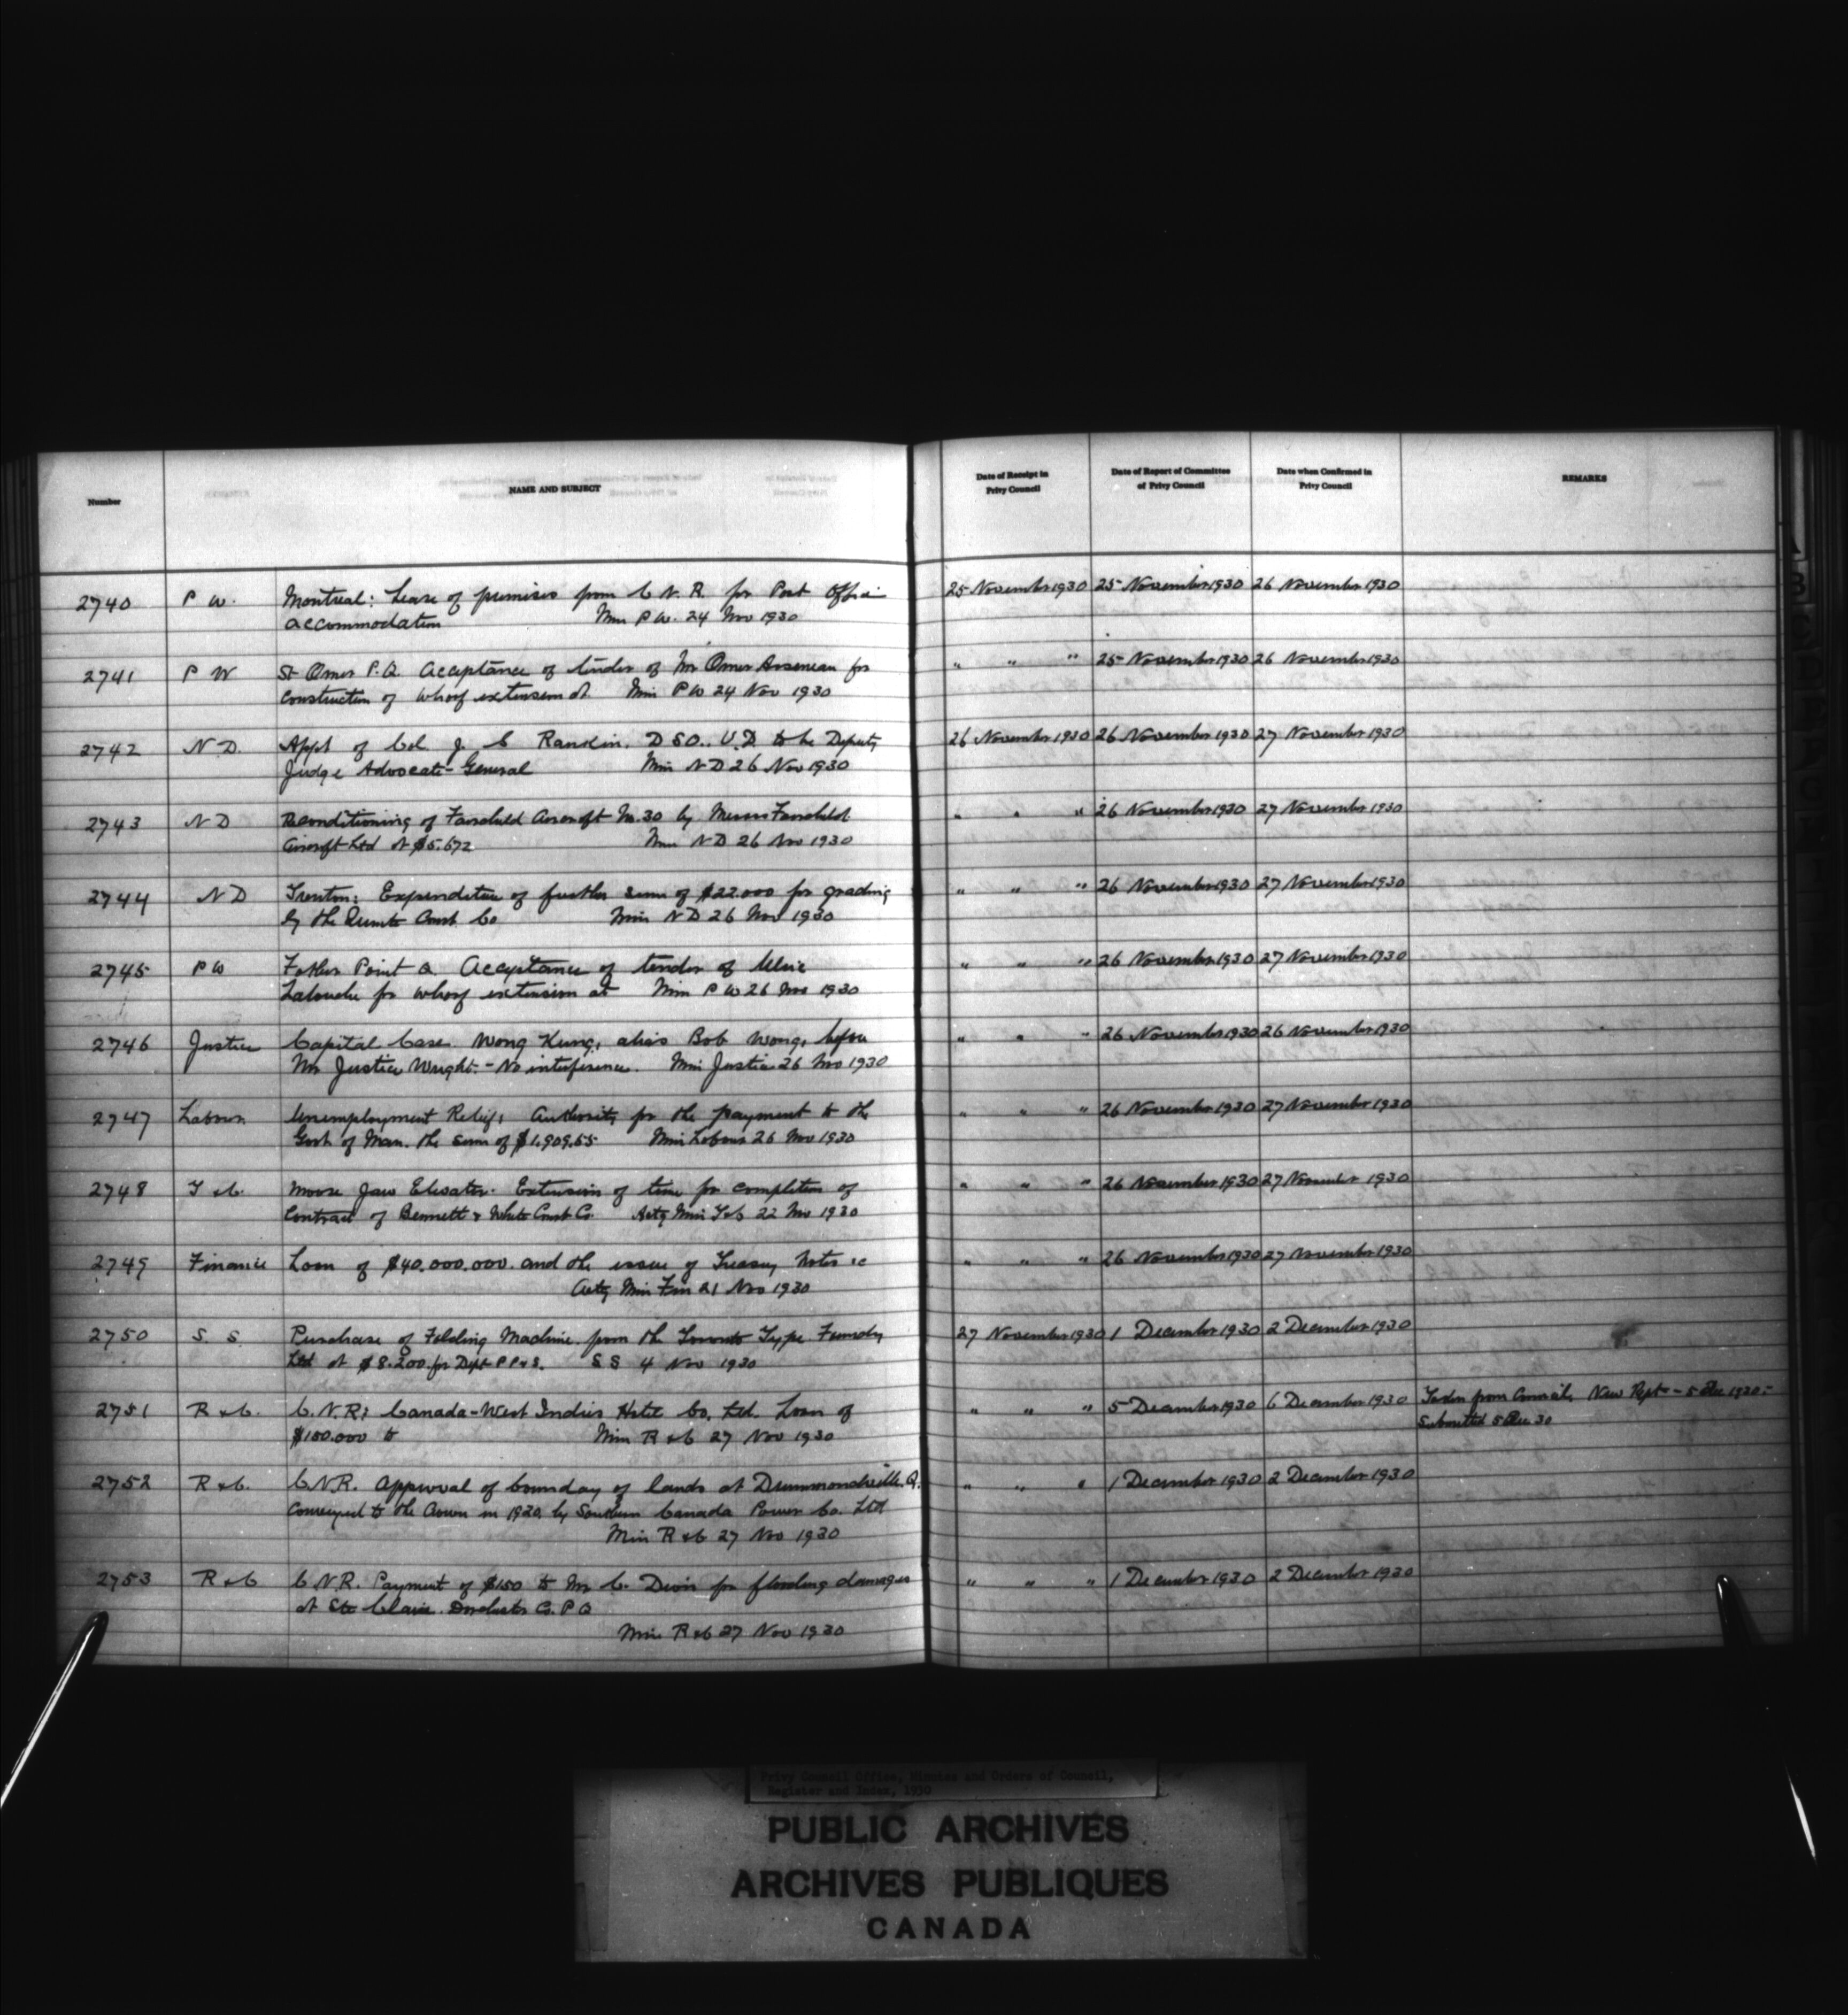 Number
NAME AND SUBJECT
Date of Receipt in
Privy Council
Date of Report of Committee
of Privy Council
Date when Confirmed in
Privy Council
REMARKS
2740 P W. Montreal: Lease of premises from C N. R. for Post Office 25 November 1930 25 November 1930 26 November 1930
accommodation Min P W. 24 Nov 1930
2741 P W St Omer P.Q. Acceptance of tender of Mr Omer Arseneau for " " " 25 November 1930 26 November 1930
construction of wharf extension at Min P W 24 Nov 1930
2742 N. D. Appt of Col. J. C Rankin. D S O.. V.D. to be Deputy 26 November 1930 26 November 1930 27 November 1930
Judge Advocate-General Min N D 26 Nov 1930
2743 N D Reconditioning of Fairchild Aircraft No. 30 by Messrs Fairchild " " " 26 November 1930 27 November 1930
Aircraft Ltd at $5.672 Min N D 26 Nov 1930
2744 N D Trenton: Expenditure of further sum of $22.000 for grading " " " 26 November 1930 27 November 1930
by the Quinte Const. Co Min N D 26 Nov 1930
2745 P W Father Point Q. Acceptance of tender of " " " 26 November 1930 27 November 1930
for wharf extension at Min P W 26 Nov 1930
2746 Justice Capital Case. Wong Kung, alias Bob Wong, before " " " 26 November 1930 26 November 1930
Mr Justice Wright. - No interference. Min Justice 26 Nov 1930
2747 Labour Unemployment Relief: Authority for the payment to the " " " 26 November 1930 27 November 1930
Govt of Man. the sum of $1,909.65 Min Labour 26 Nov 1930
2748 T & C. Moose Jaw Elevator. Extension of time for completion of " " " 26 November 1930 27 November 1930
Contract of Bennett & White Const Co. Actg Min T&C 22 Nov 1930
2749 Finance Loan of $40.000.000. and the issue of Treasury Notes &c " " " 26 November 1930 27 November 1930
Actg Min Fin 21 Nov 1930
2750 S. S. Purchase of Folding Machine from the Toronto Type Foundry 27 November 1930 1 December 1930 2 December 1930
Ltd at $8.200. for Dept P P & S. S S 4 Nov 1930
2751 R & C. C. N. R: Canada-West Indies Hotel Co, Ltd. Loan of " " " 5 December 1930 6 December 1930 Taken from Council. New Rept - 5 Dec 1930 -
$150.000 to Min R & C 27 Nov 1930 Submitted 5 Dec 30
2752 R & C. C N.R. Approval of boundary of lands at Drummondville. Q. " " " 1 December 1930 2 December 1930
conveyed to the Crown in 1920. by Southern Canada Power Co. Ltd
Min R & C 27 Nov 1930
2753 R & C C N.R. Payment of $150 to Mr C. for flooding damages " " " 1 December 1930 2 December 1930
at Ste Claire. Dorchester Co. P Q
Min R & C 27 Nov 1930
Privy Council Office, Minutes and Orders of Council,
Register and Index, 1930
PUBLIC ARCHIVES
ARCHIVES PUBLIQUES
CANADA